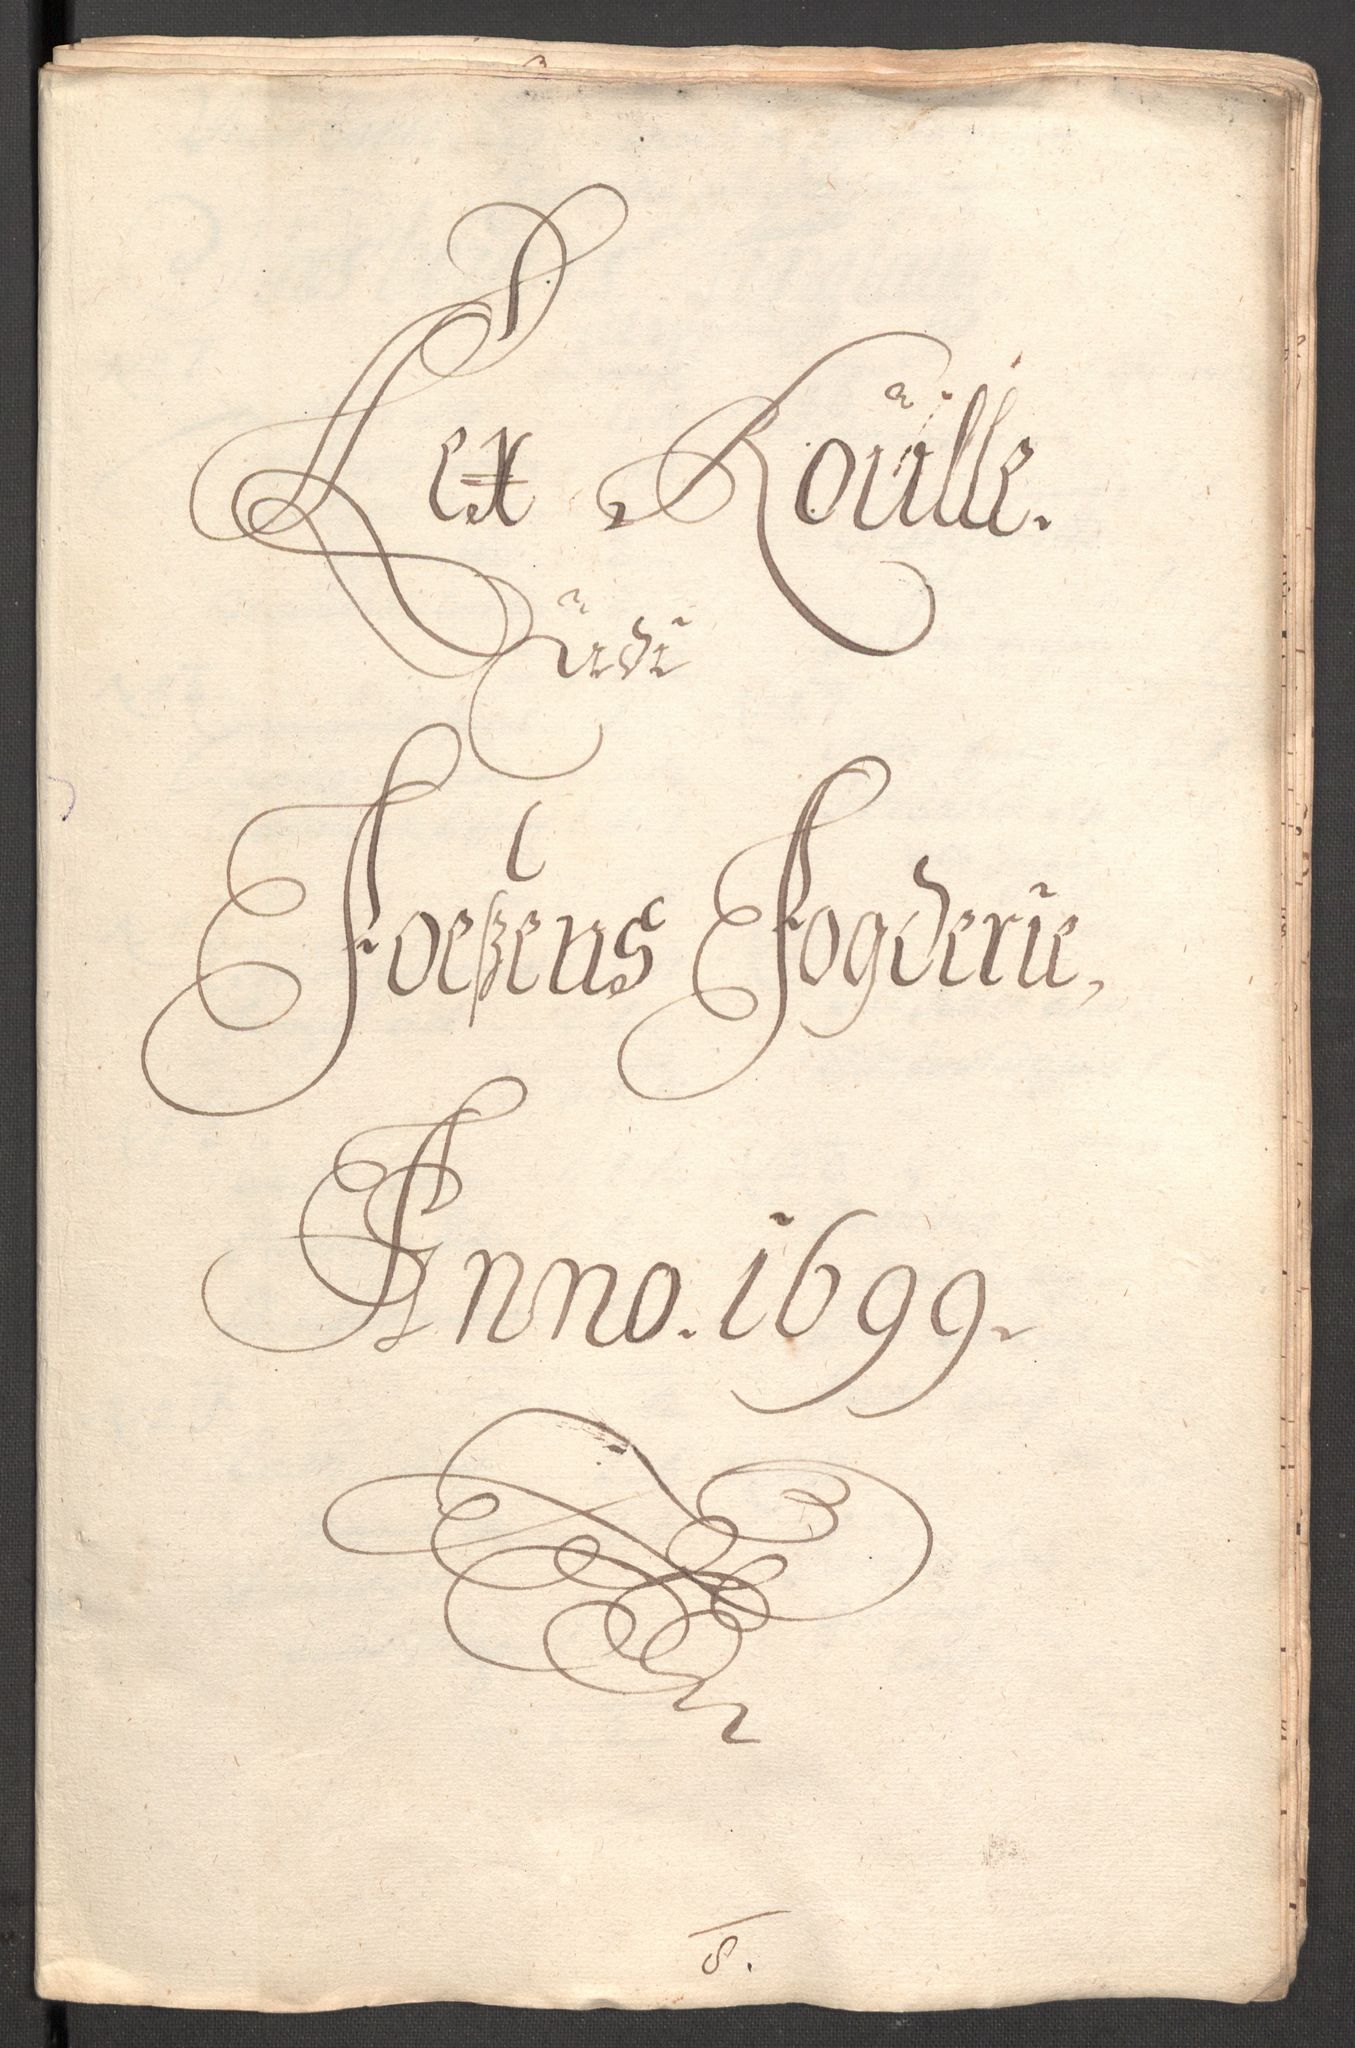 Lex Roülle.
Üdi
Foeßens Fogderie,
Anno. 1699.
8.